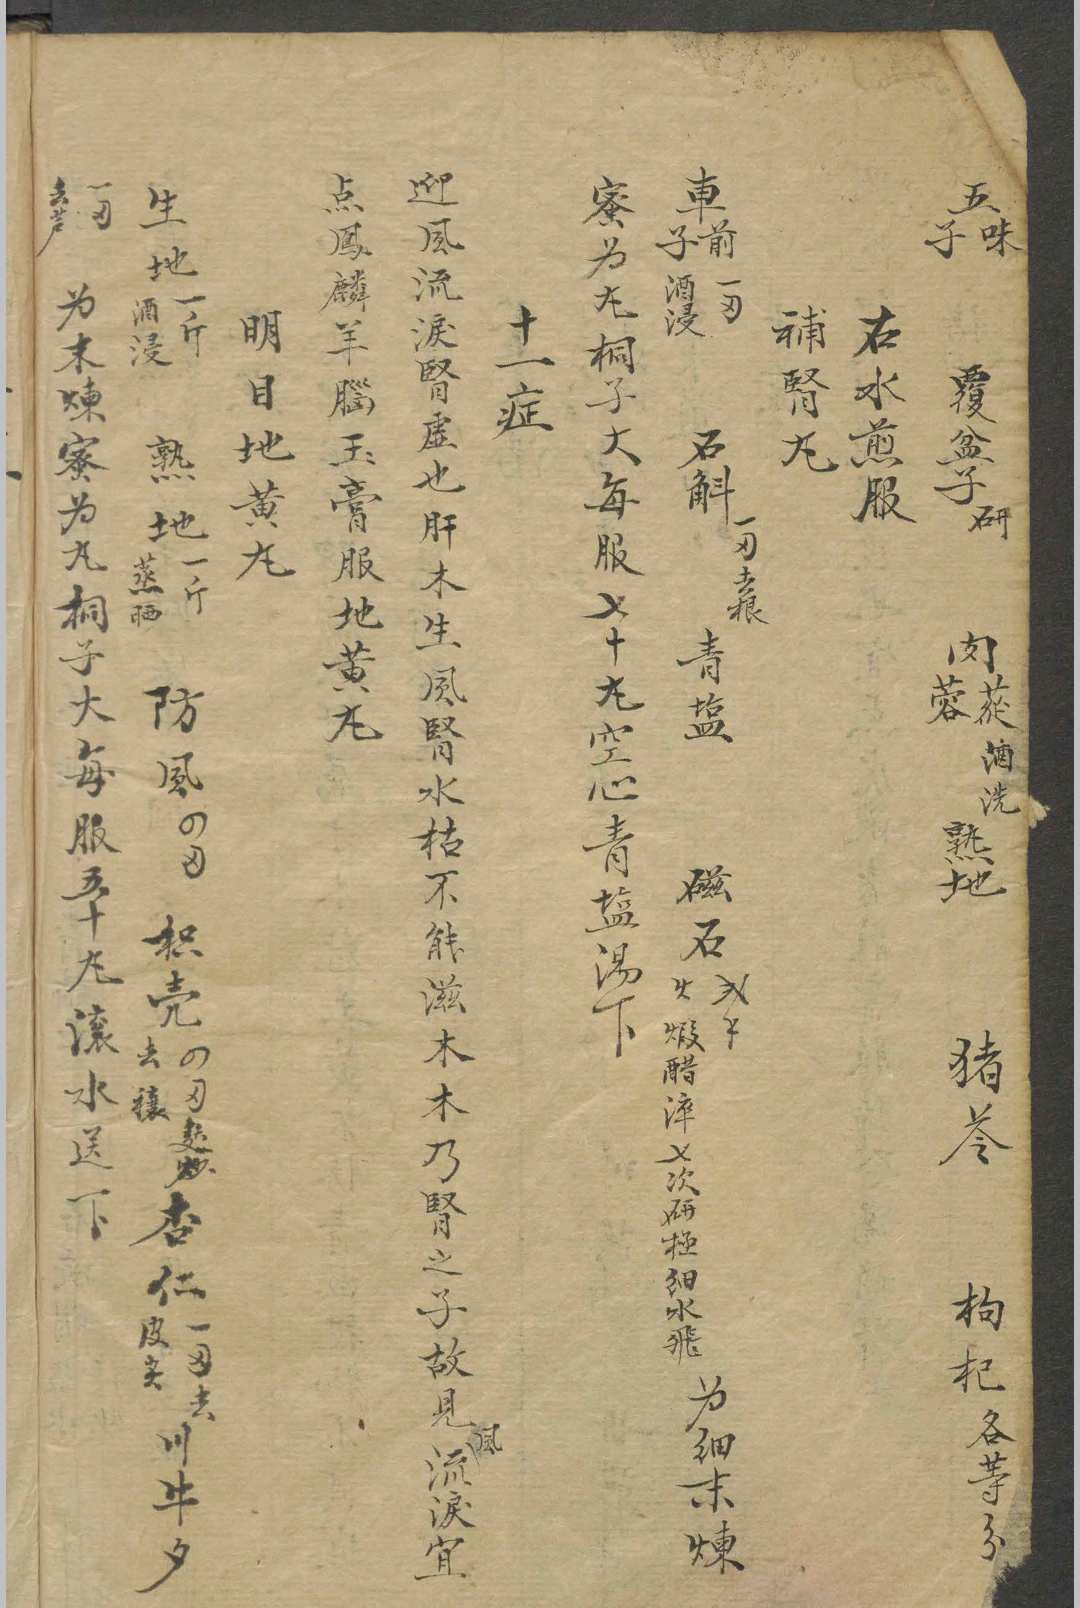 五味子 覆盆子研 肉蓯蓉酒洗 熟地 猪苓 枸杞各等分
右水煎服
補腎丸
車前子一兩酒浸 石斛一兩去根 青塩 磁石火煅醋淬七次研極細水飛 为細末煉
蜜为丸桐子大每服七十丸空心青塩湯下
十一症
迎風流淚腎虛也肝木生風腎水枯不能滋木木乃腎之子故見風流淚宜
点鳳麟羊腦玉膏服地黄丸
明目地黄丸
生地一斤酒浸 熟地一斤蒸晒 防風四兩 枳壳四兩去穰麩炒 杏仁一兩去皮尖 川牛夕
一兩去芦 为末煉蜜为丸桐子大每服五十丸滚水送下